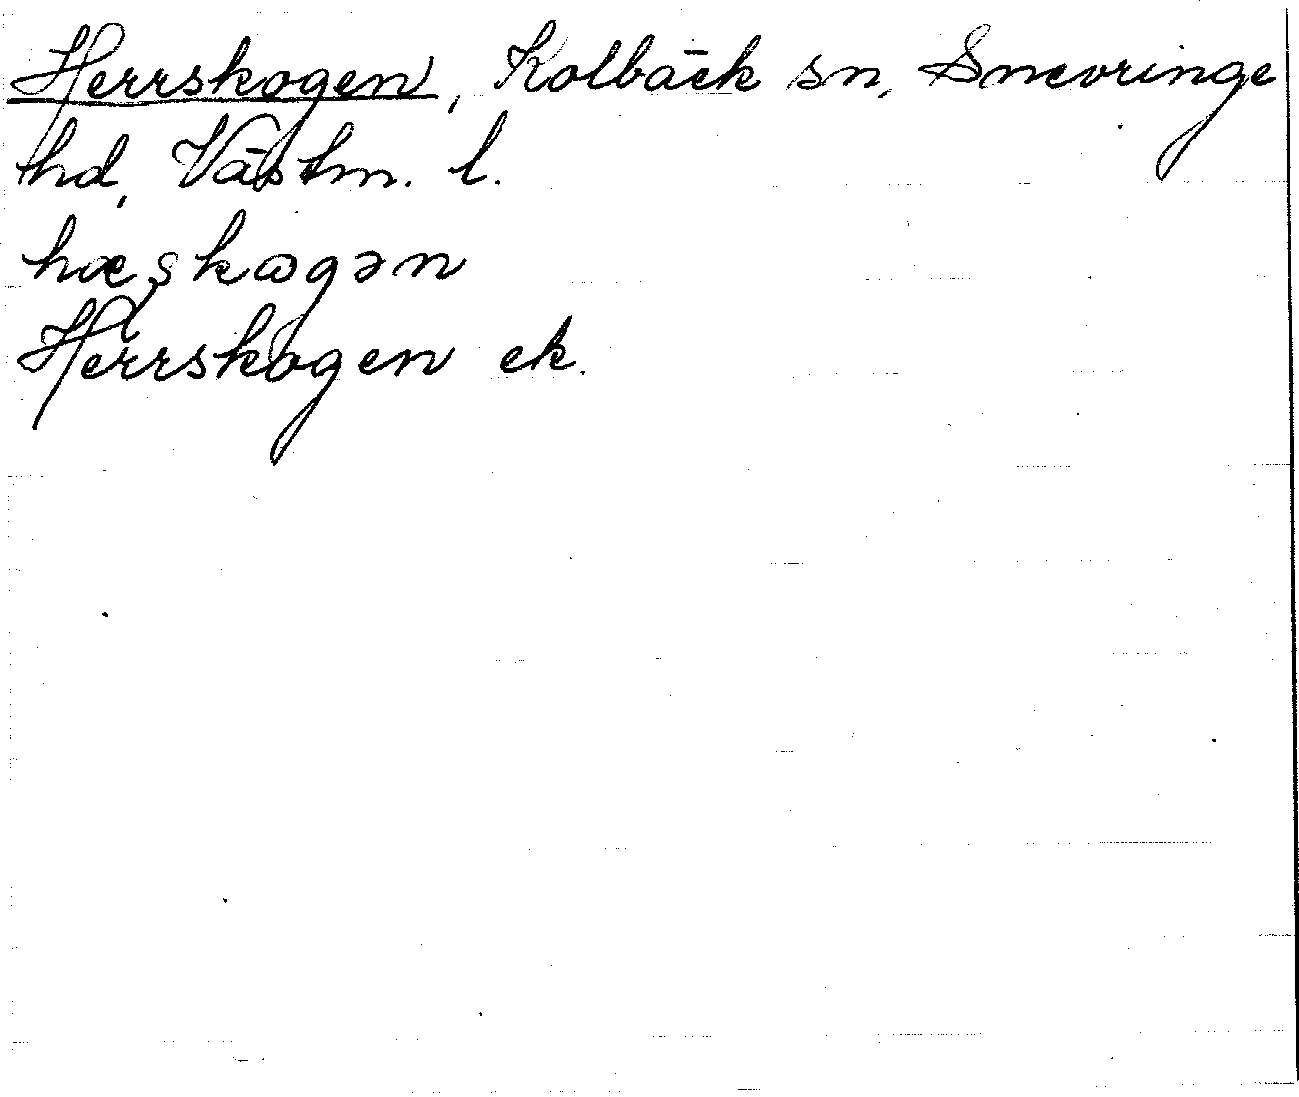 Herrskogen, Kolbäck sn, Snevringe
hd, Västm. l.
hæʂkɷgən
Herrskogen ek.